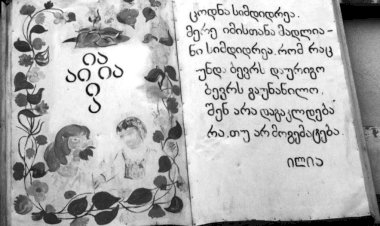 ია
აი ია
ი
ა
ცოდნა სიმდიდრეა.
მერე იმისთანა მადლია-
ნი სიმდიდრეა, რომ რაც
უნდ ბევრს დაურიგო
ბევრს გაუნაწილო,
შენ არა დაგაკლდება
რა, თუ არ მოგემატება.
ილია